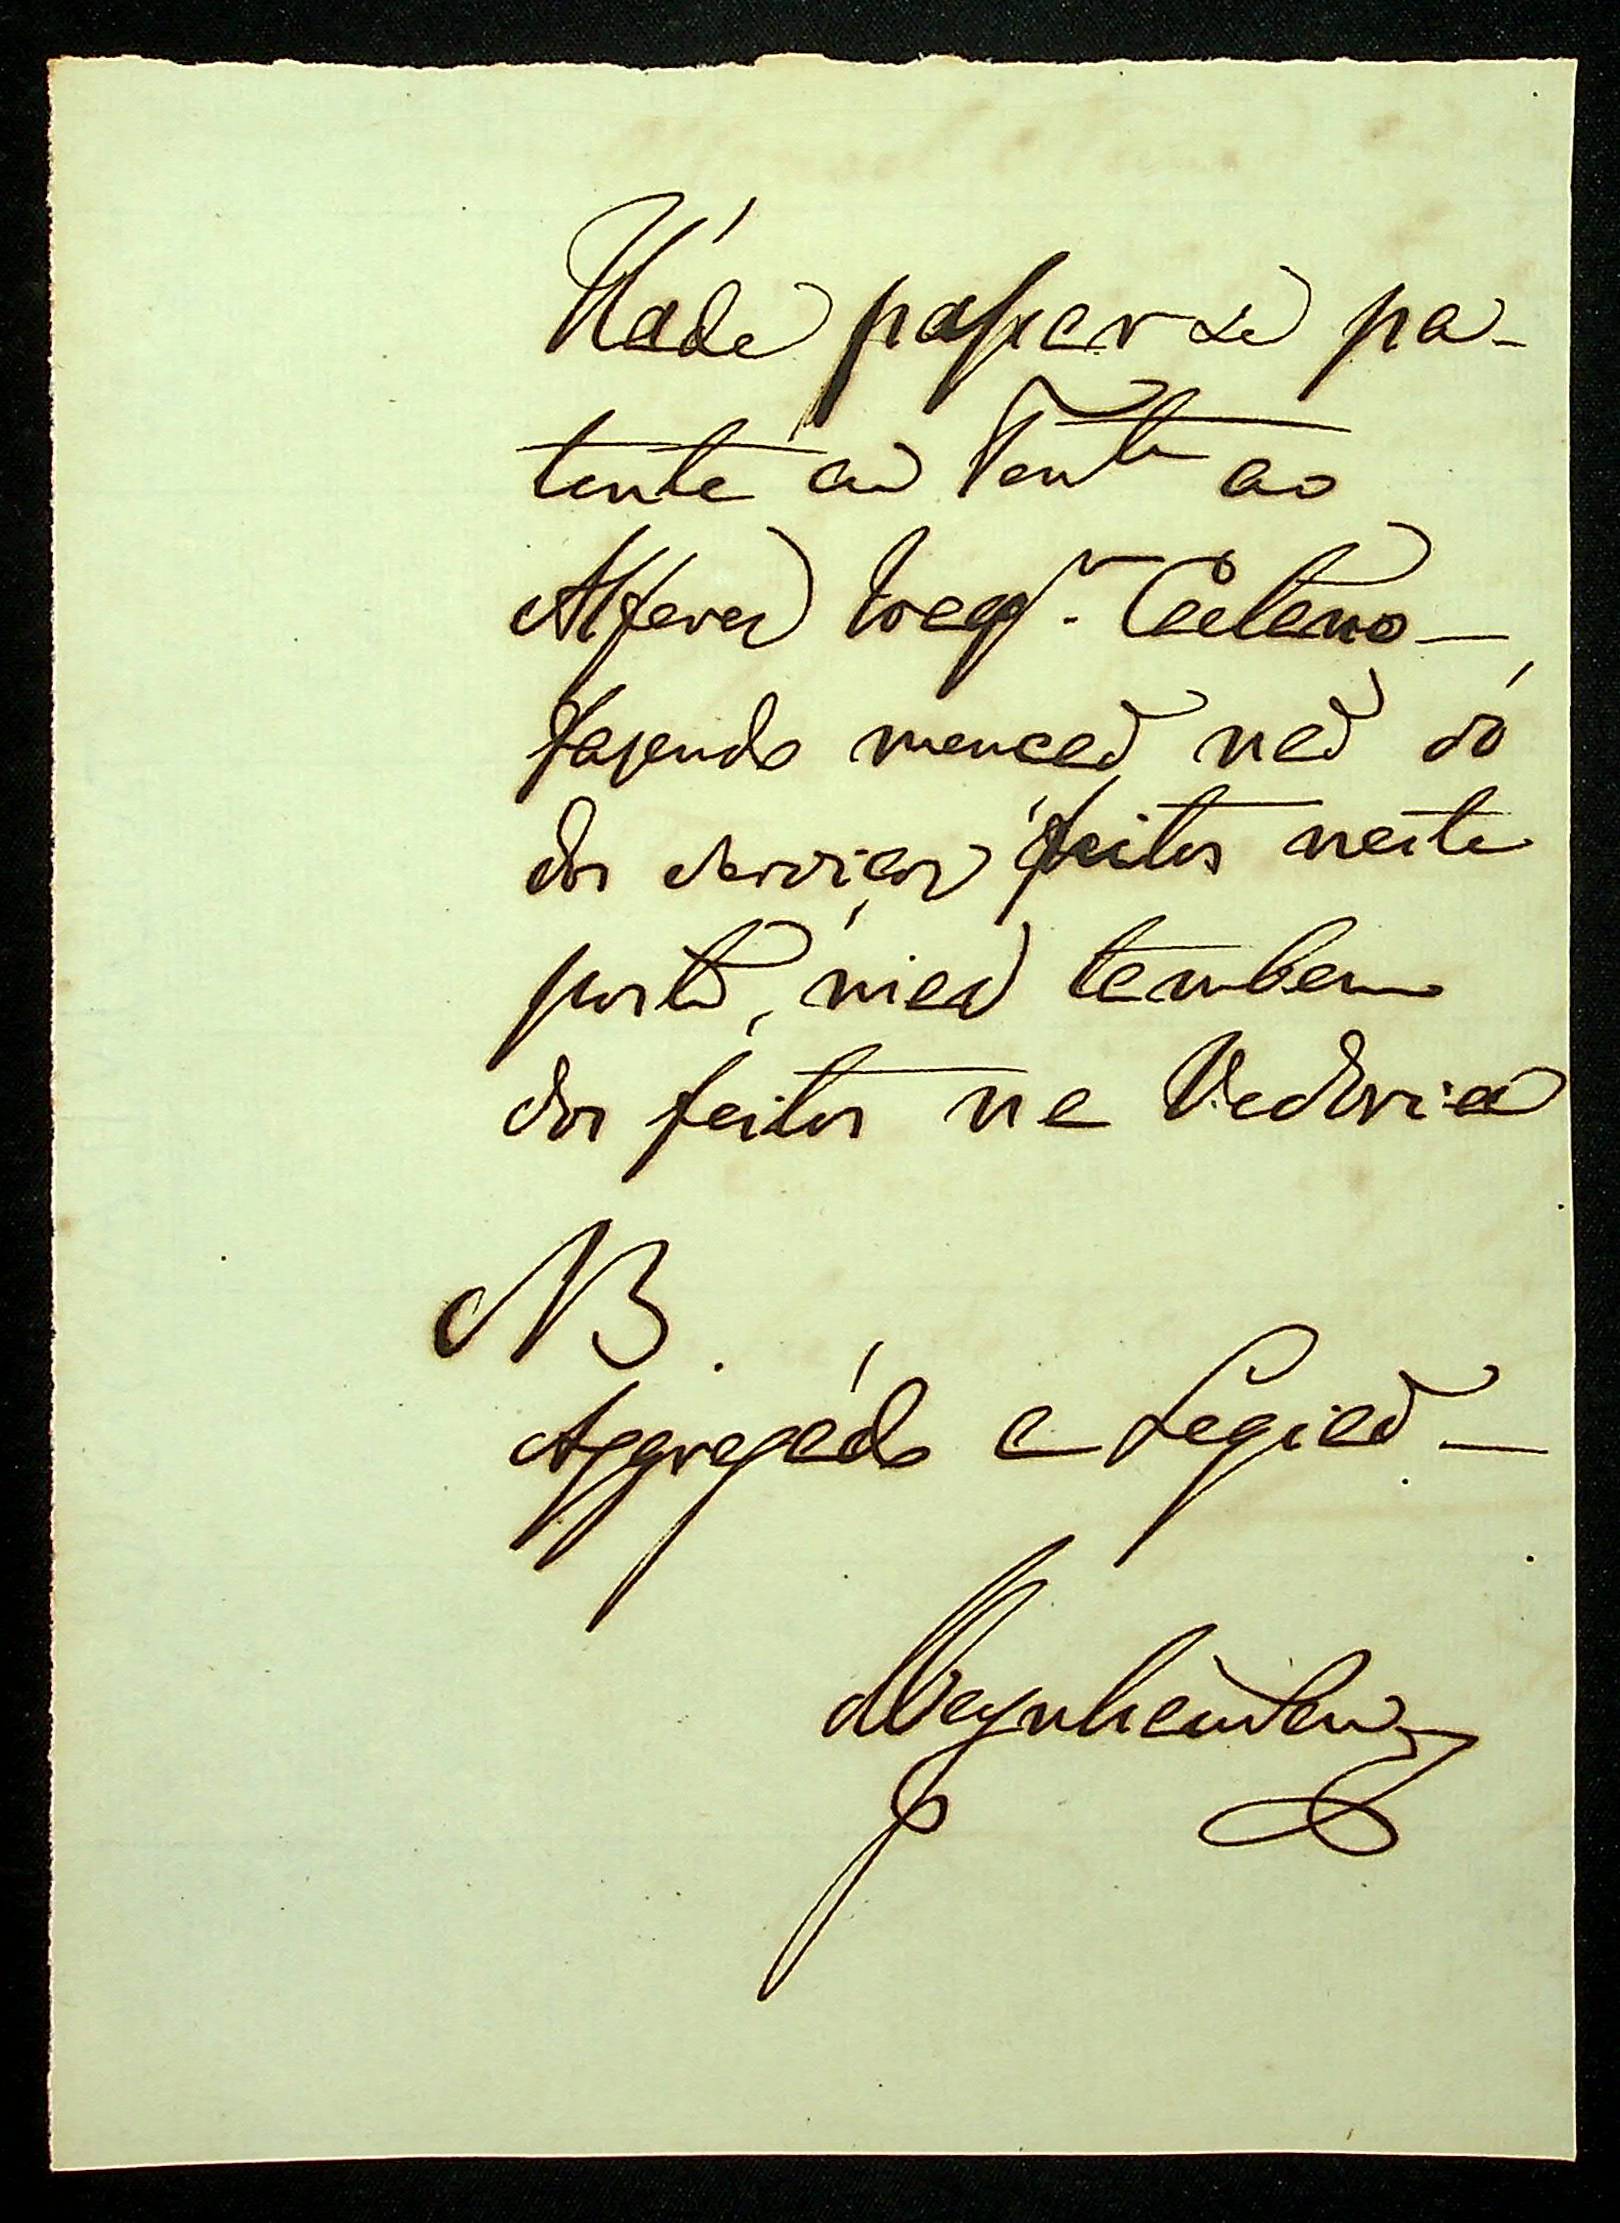 Háde passar se pa-
tente de Tente ao
Alferes Joaqm. Caetano —
fazendo mençaõ naõ só
dos serviços feitos neste
posto, mas tambem
dos feitos na Vedoria
NB.
Aggregádo a Legiaõ —